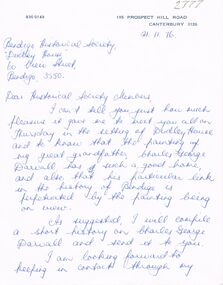 2777
836 0148
195 PROSPECT HILL ROAD
CANTERBURY 3126
21. 11. 76.
Bendigo Historical Society,
Dudley House,
60 View Street
Bendigo, 3550.
Dear Historical Society Members
I can't tell you just how much
pleasure it gave me to meet you all on
Thursday in the setting of Dudley House
and to know that the painting of
my great grandfather Charles George
Darwall has such a good home,
and also that his particular link
in the history of Bendigo is
perpetrated by the painting being
on view.
As suggested, I will compile
a short history on Charles George
Darwall and send it to you.
I am looking forward to
keeping in contact through my